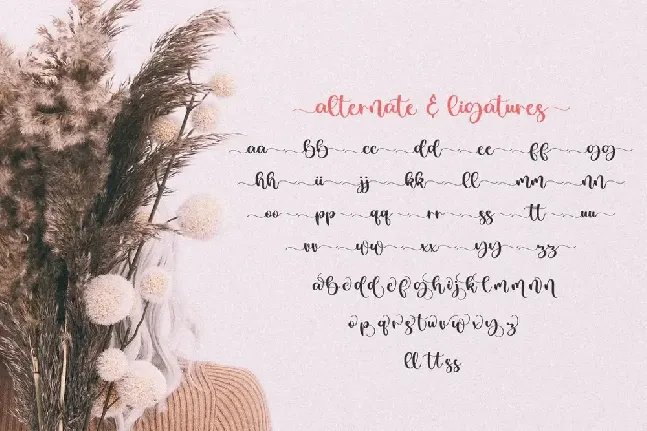 alternate & ligatures
aa bb cc dd ee ff gg
hh ii jj kk ll mm nn
oo pp qq rr ss tt uu
vv ww xx yy zz
a b c d d e f g h i j k l m m n n
o p q r s t u v w x y z
ll tt ss